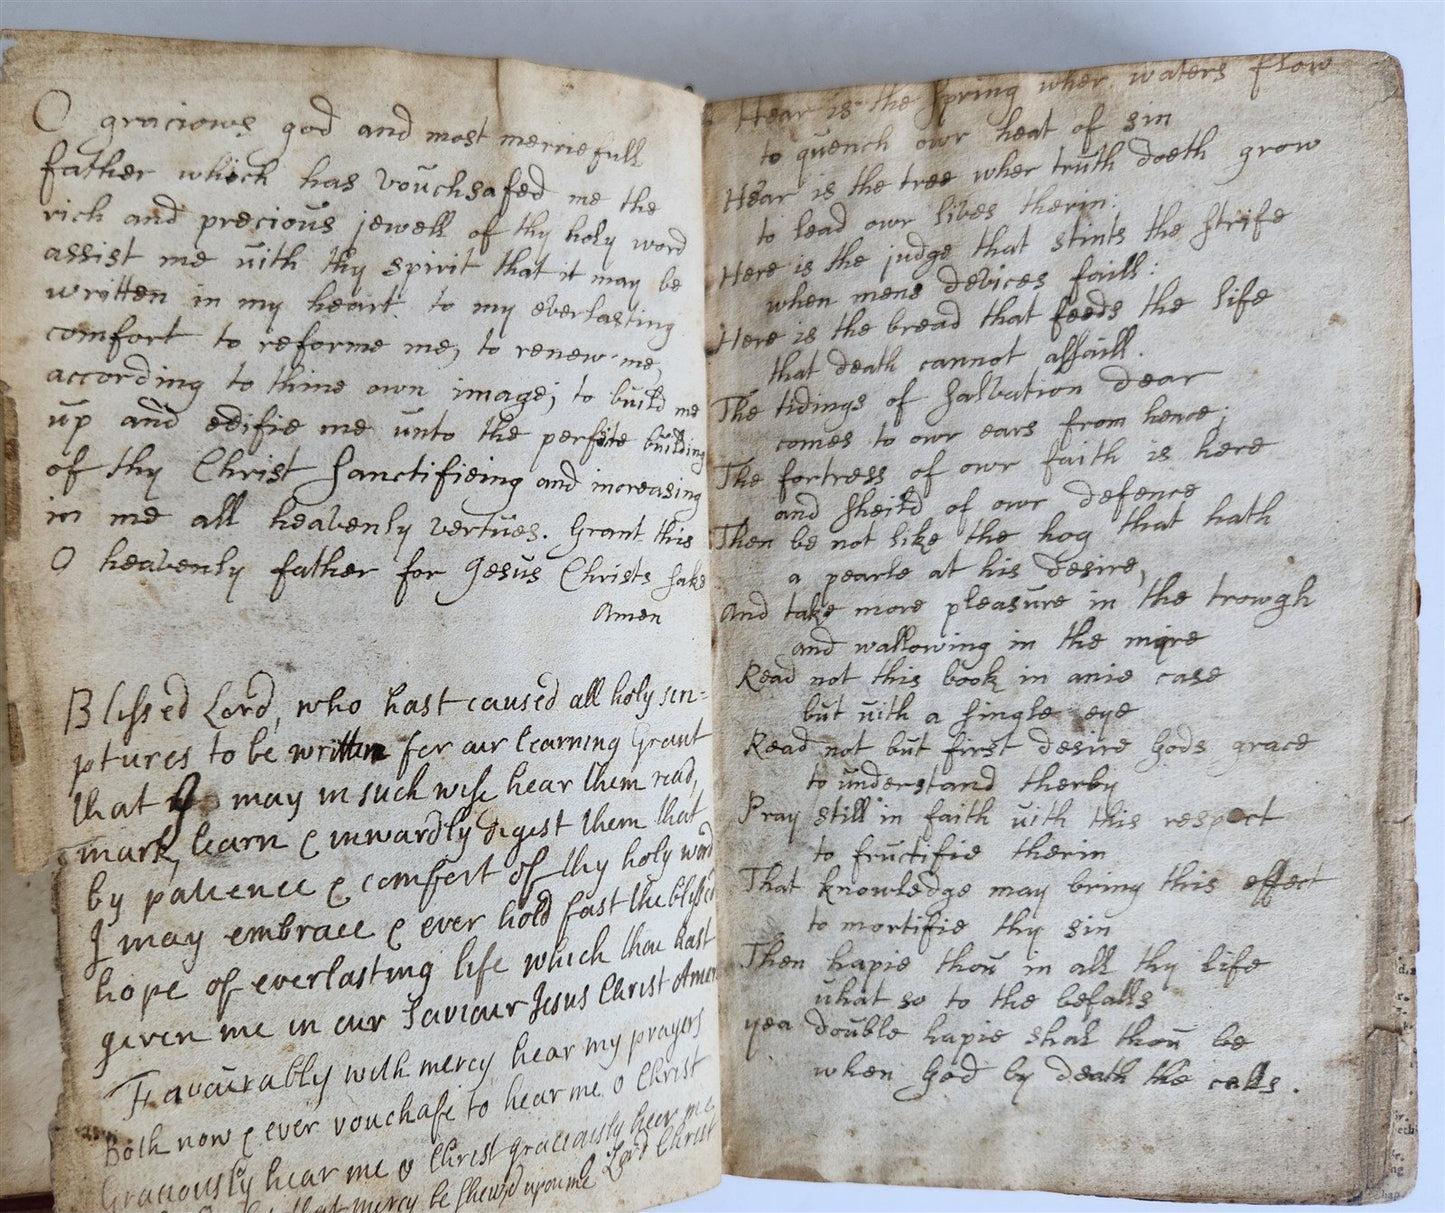 O gracious god and most merciefull
father which has vouchsafed me the
rich and precious jewell of thy holy word
assist me uith thy spirit that it may be
written in my heart to my everlasting
comfort to reforme me, to renew me,
according to thine own image; to build me
up and edifie me unto the perfite building
of thy Christ sanctifieing and increasing
in me all heavenly vertues. Grant this
O heavenly father for Jesus Christs sake
Amen
Blessed Lord, who hast caused all holy scri=
ptures to be written for our learning Grant
that I may in such wise hear them read,
mark, learn & inwardly digest them that
by patience & comfort of thy holy word
I may embrace & ever hold fast the blessed
hope of everlasting life which thou hast
given me in our Saviour Jesus Christ Amen
Favourably with mercy hear my prayers
Both now & ever vouchafe to hear me o Christ
Graciously hear me o Christ graciously hear me
Lord Christ
that mercy be shewed upon me
Hear is the spring wher waters flow
to quench owr heat of sin
Hear is the tree wher truth doeth grow
to lead owr lives therin:
Here is the judge that stints the strife
when mens devices faill:
Here is the bread that feeds the life
that death cannot assaill.
The tidings of salvation dear
comes to owr ears from hence;
The fortress of owr faith is here
and sheild of owr defence
Then be not like the hog that hath
a pearle at his desire,
And take more pleasure in the trowgh
and wallowing in the mire
Read not this book in anie case
but uith a single eye
Read not but first desire Gods grace
to understand therby
Pray still in faith uith this respect
to fructifie therin
That knowledge may bring this effect
to mortifie thy sin
Then hapie thou in all thy life
uhat so to the befalls
yea double hapie shal thou be
when God by death the calls.